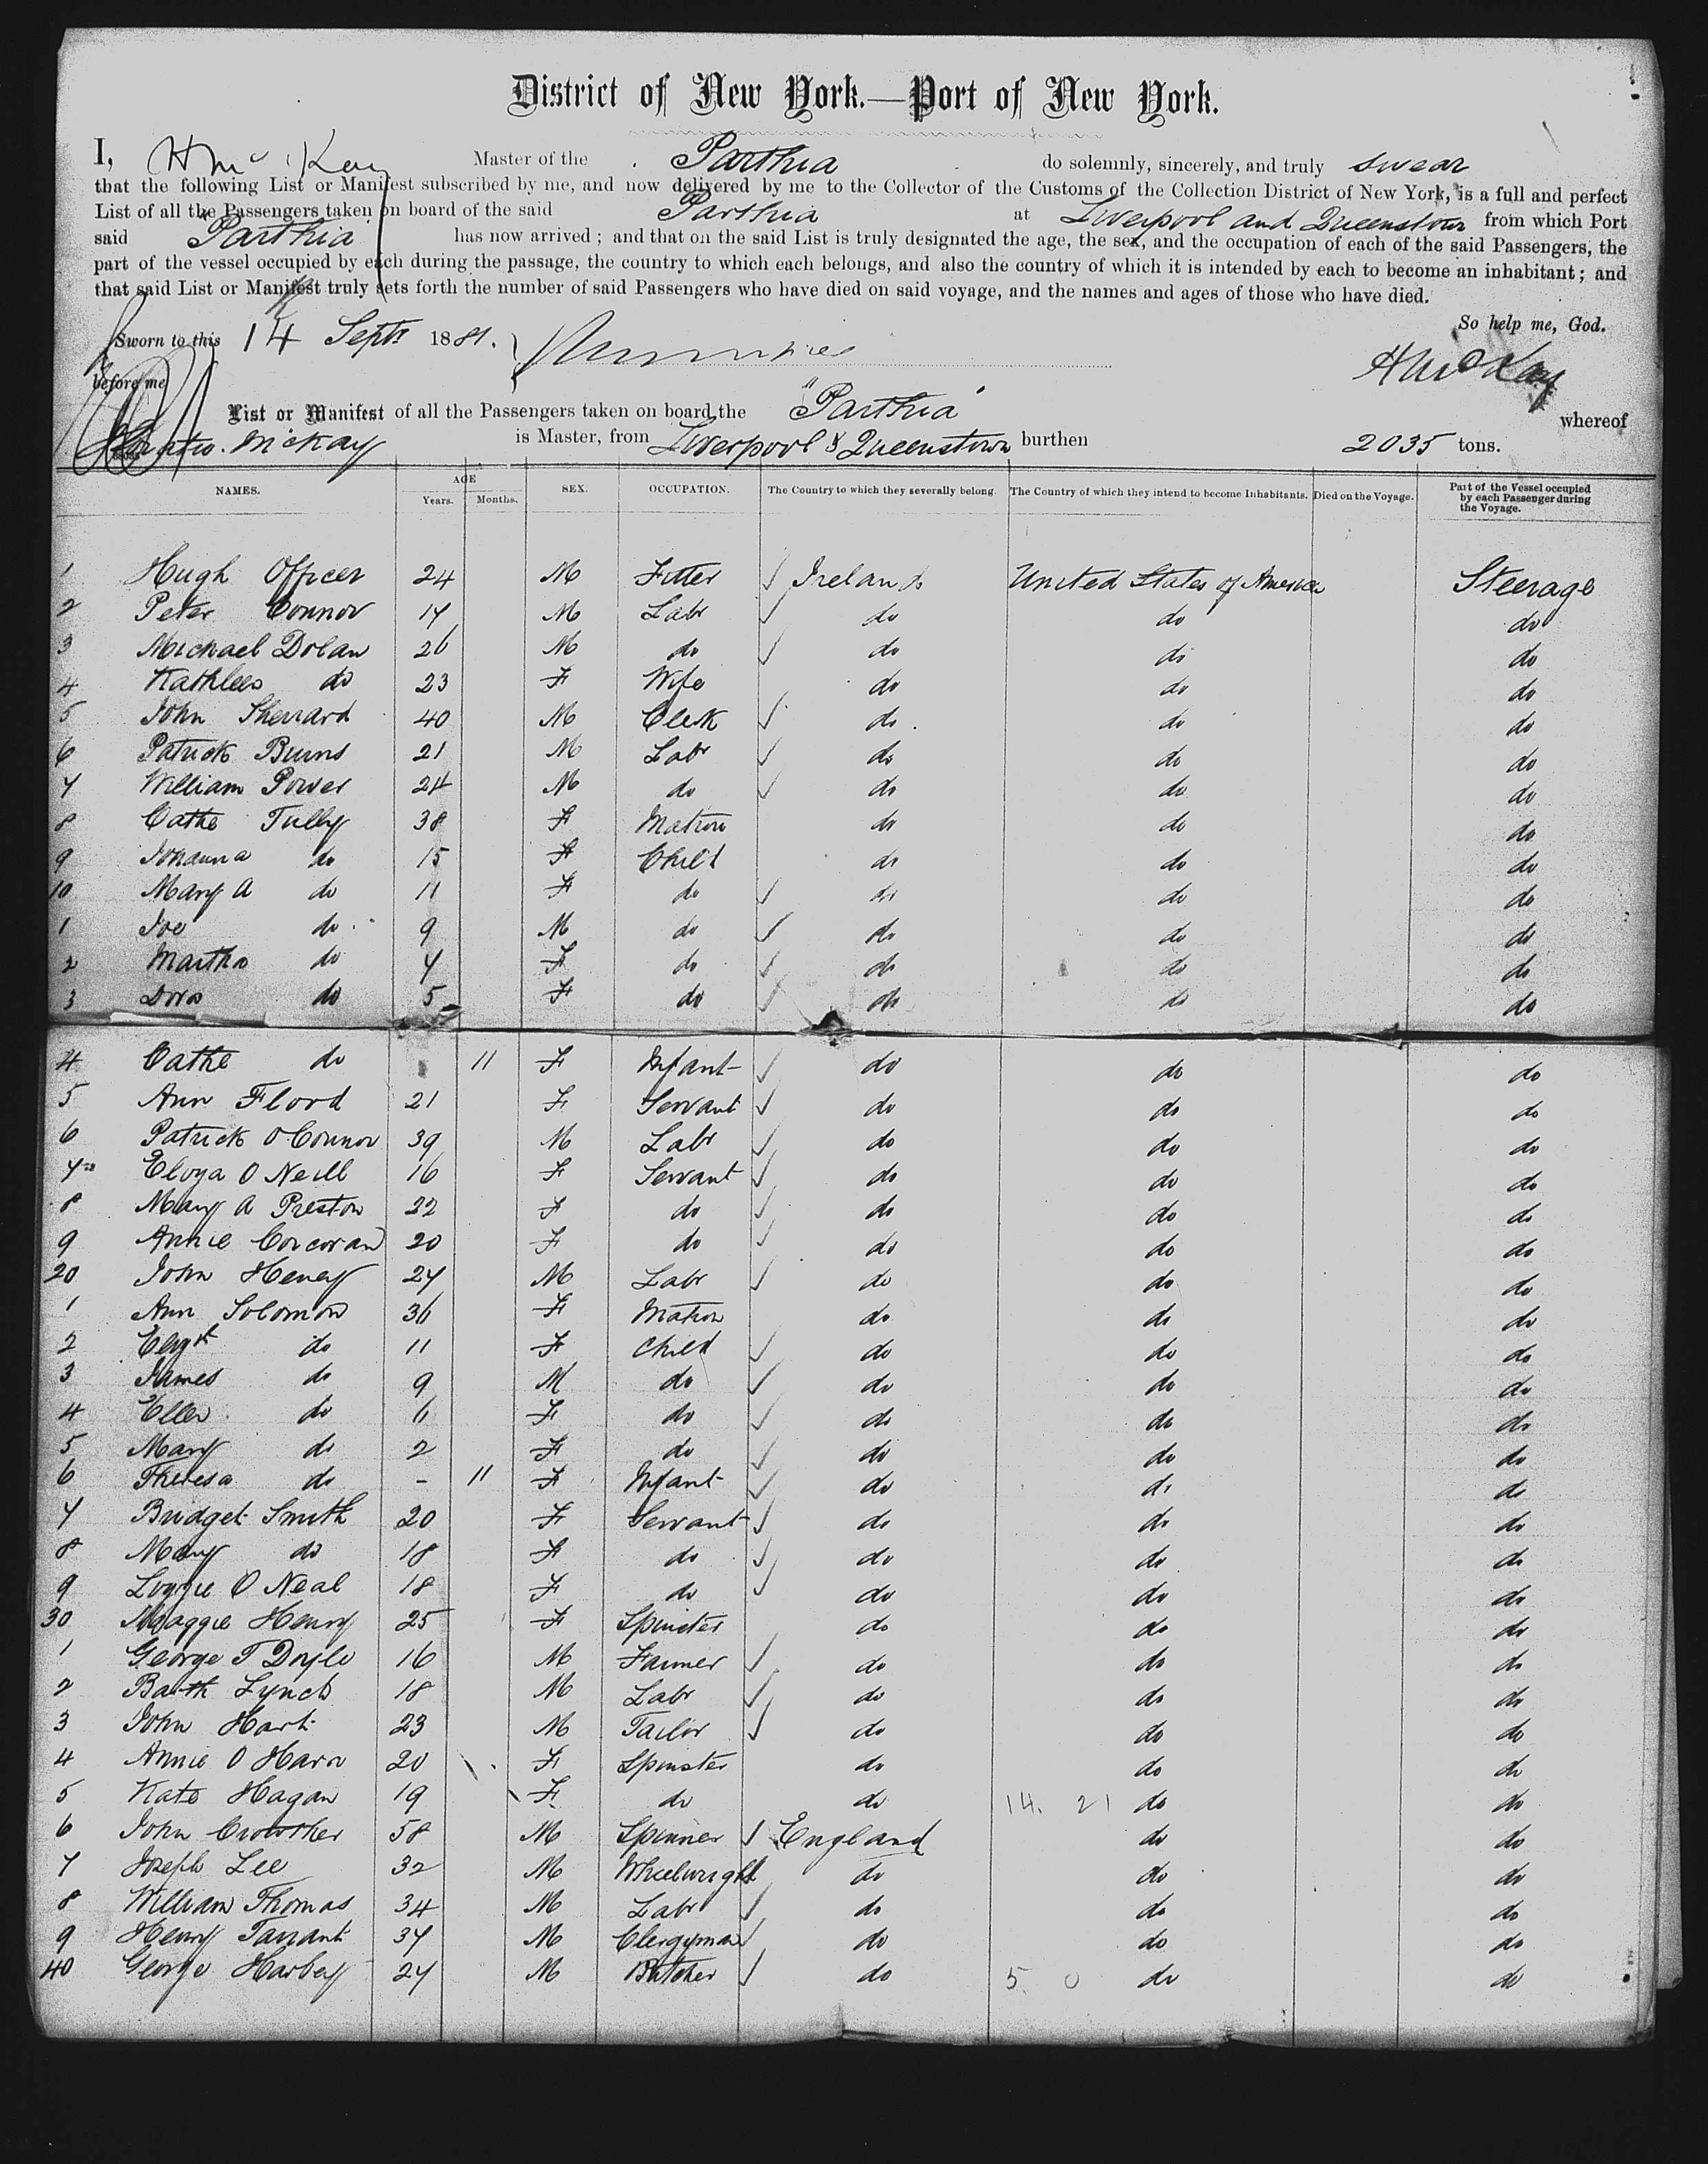 District of New York.—Port of New York.
I, H McKay Master of the Parthia do solemnly, sincerely, and truly swear
that the following List or Manifest subscribed by me, and now delivered by me to the Collector of the Customs of the Collection District of New York, is a full and perfect
List of all the Passengers taken on board of the said Parthia at Liverpool and Queenstown from which Port
said "Parthia" has now arrived; and that on the said List is truly designated the age, the sex, and the occupation of each of the said Passengers, the
part of the vessel occupied by each during the passage, the country to which each belongs, and also the country of which it is intended by each to become an inhabitant; and
that said List or Manifest truly sets forth the number of said Passengers who have died on said voyage, and the names and ages of those who have died.
So help me, God.
Sworn to this 14 Sept 1881.
H McKay
before me
List or Manifest of all the Passengers taken on board the "Parthia" whereof
McKay is Master, from Liverpool & Queenstown burthen 2035 tons.
NAMES. AGE Years. Months. SEX. OCCUPATION. The Country to which they severally belong. The Country of which they intend to become Inhabitants. Died on the Voyage. Part of the Vessel occupied by each Passenger during the Voyage.
1 Hugh Officer 24 M Fitter Ireland United States of America Steerage
2 Peter Connor 17 M Labr do do do
3 Michael Dolan 26 M do do do do
4 Kathleen do 23 F Wife do do do
5 John Sherrard 40 M Clerk do do do
6 Patrick Burns 21 M Labr do do do
7 William Power 24 M do do do do
8 Cathe Tully 38 F Matron do do do
9 Johanna do 15 F Child do do do
10 Mary A do 11 F do do do do
1 Joe do 9 M do do do do
2 Martha do 7 F do do do do
3 Dora do 5 F do do do do
4 Cathe do 11 F Infant do do do
5 Ann Flood 21 F Servant do do do
6 Patrick O Connor 39 M Labr do do do
7 Eliza O Neill 16 F Servant do do do
8 Mary A Preston 22 F do do do do
9 Annie Corcoran 20 F do do do do
20 John Heney 27 M Labr do do do
1 Ann Solomon 36 F Matron do do do
2 Elizth do 11 F Child do do do
3 James do 9 M do do do do
4 Ellen do 6 F do do do do
5 Mary do 2 F do do do do
6 Theresa do - 11 F Infant do do do
7 Bridget Smith 20 F Servant do do do
8 Mary do 18 F do do do do
9 Lizzie O Neal 18 F do do do do
30 Maggie Henry 25 F Spinster do do do
1 George T Doyle 16 M Farmer do do do
2 Barth Lynch 18 M Labr do do do
3 John Hart 23 M Tailor do do do
4 Annie O Hara 20 F Spinster do do do
5 Kate Hagan 19 F do do 14. 21 do do
6 John Crowther 58 M Spinner England do do
7 Joseph Lee 32 M Wheelwright do do do
8 William Thomas 34 M Labr do do do
9 Henry Tarrant 37 M Clergyman do do do
40 George Harbey 27 M Butcher do 5. 0 do do